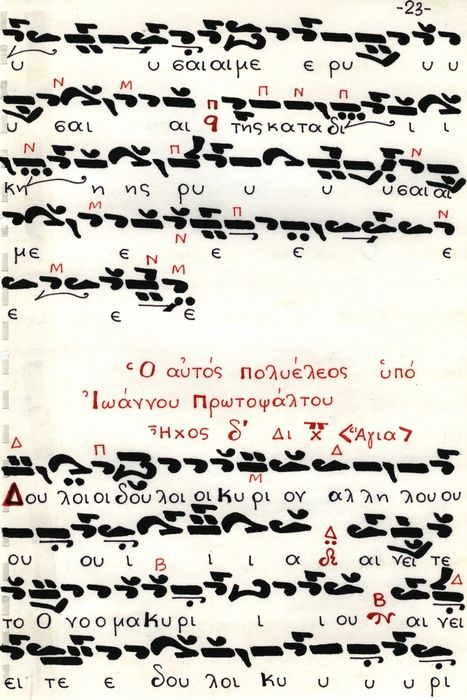 -23-
υ υ σαι αι με ε ρυ υ υ
Ν Μ Π Ν Π
υ σαι αι π q της κατα δι ι ι
Ν Π Ν
κη η ης ρυ υ υ υ σαι αι
Μ Π Ν
με ε ε ε ε ε
Μ Ν Μ
ε ε ε
Ὁ αὐτός πολυέλεος ὑπό
Ἰωάννου Πρωτοψάλτου
Ἦχος δ' Δι <Ἅγια>
Δ Π Μ Δ
Δου λοι οι δου λοι οι Κυ ρι ον αλ λη λου ου
ου ου ι ι ι α Δ αι νει τε
Β Β Δ
το Ο νο ο μα Κυ ρι ι ι ου αι νει
ει τε ε δου λοι Κυ υ υ υ ρι